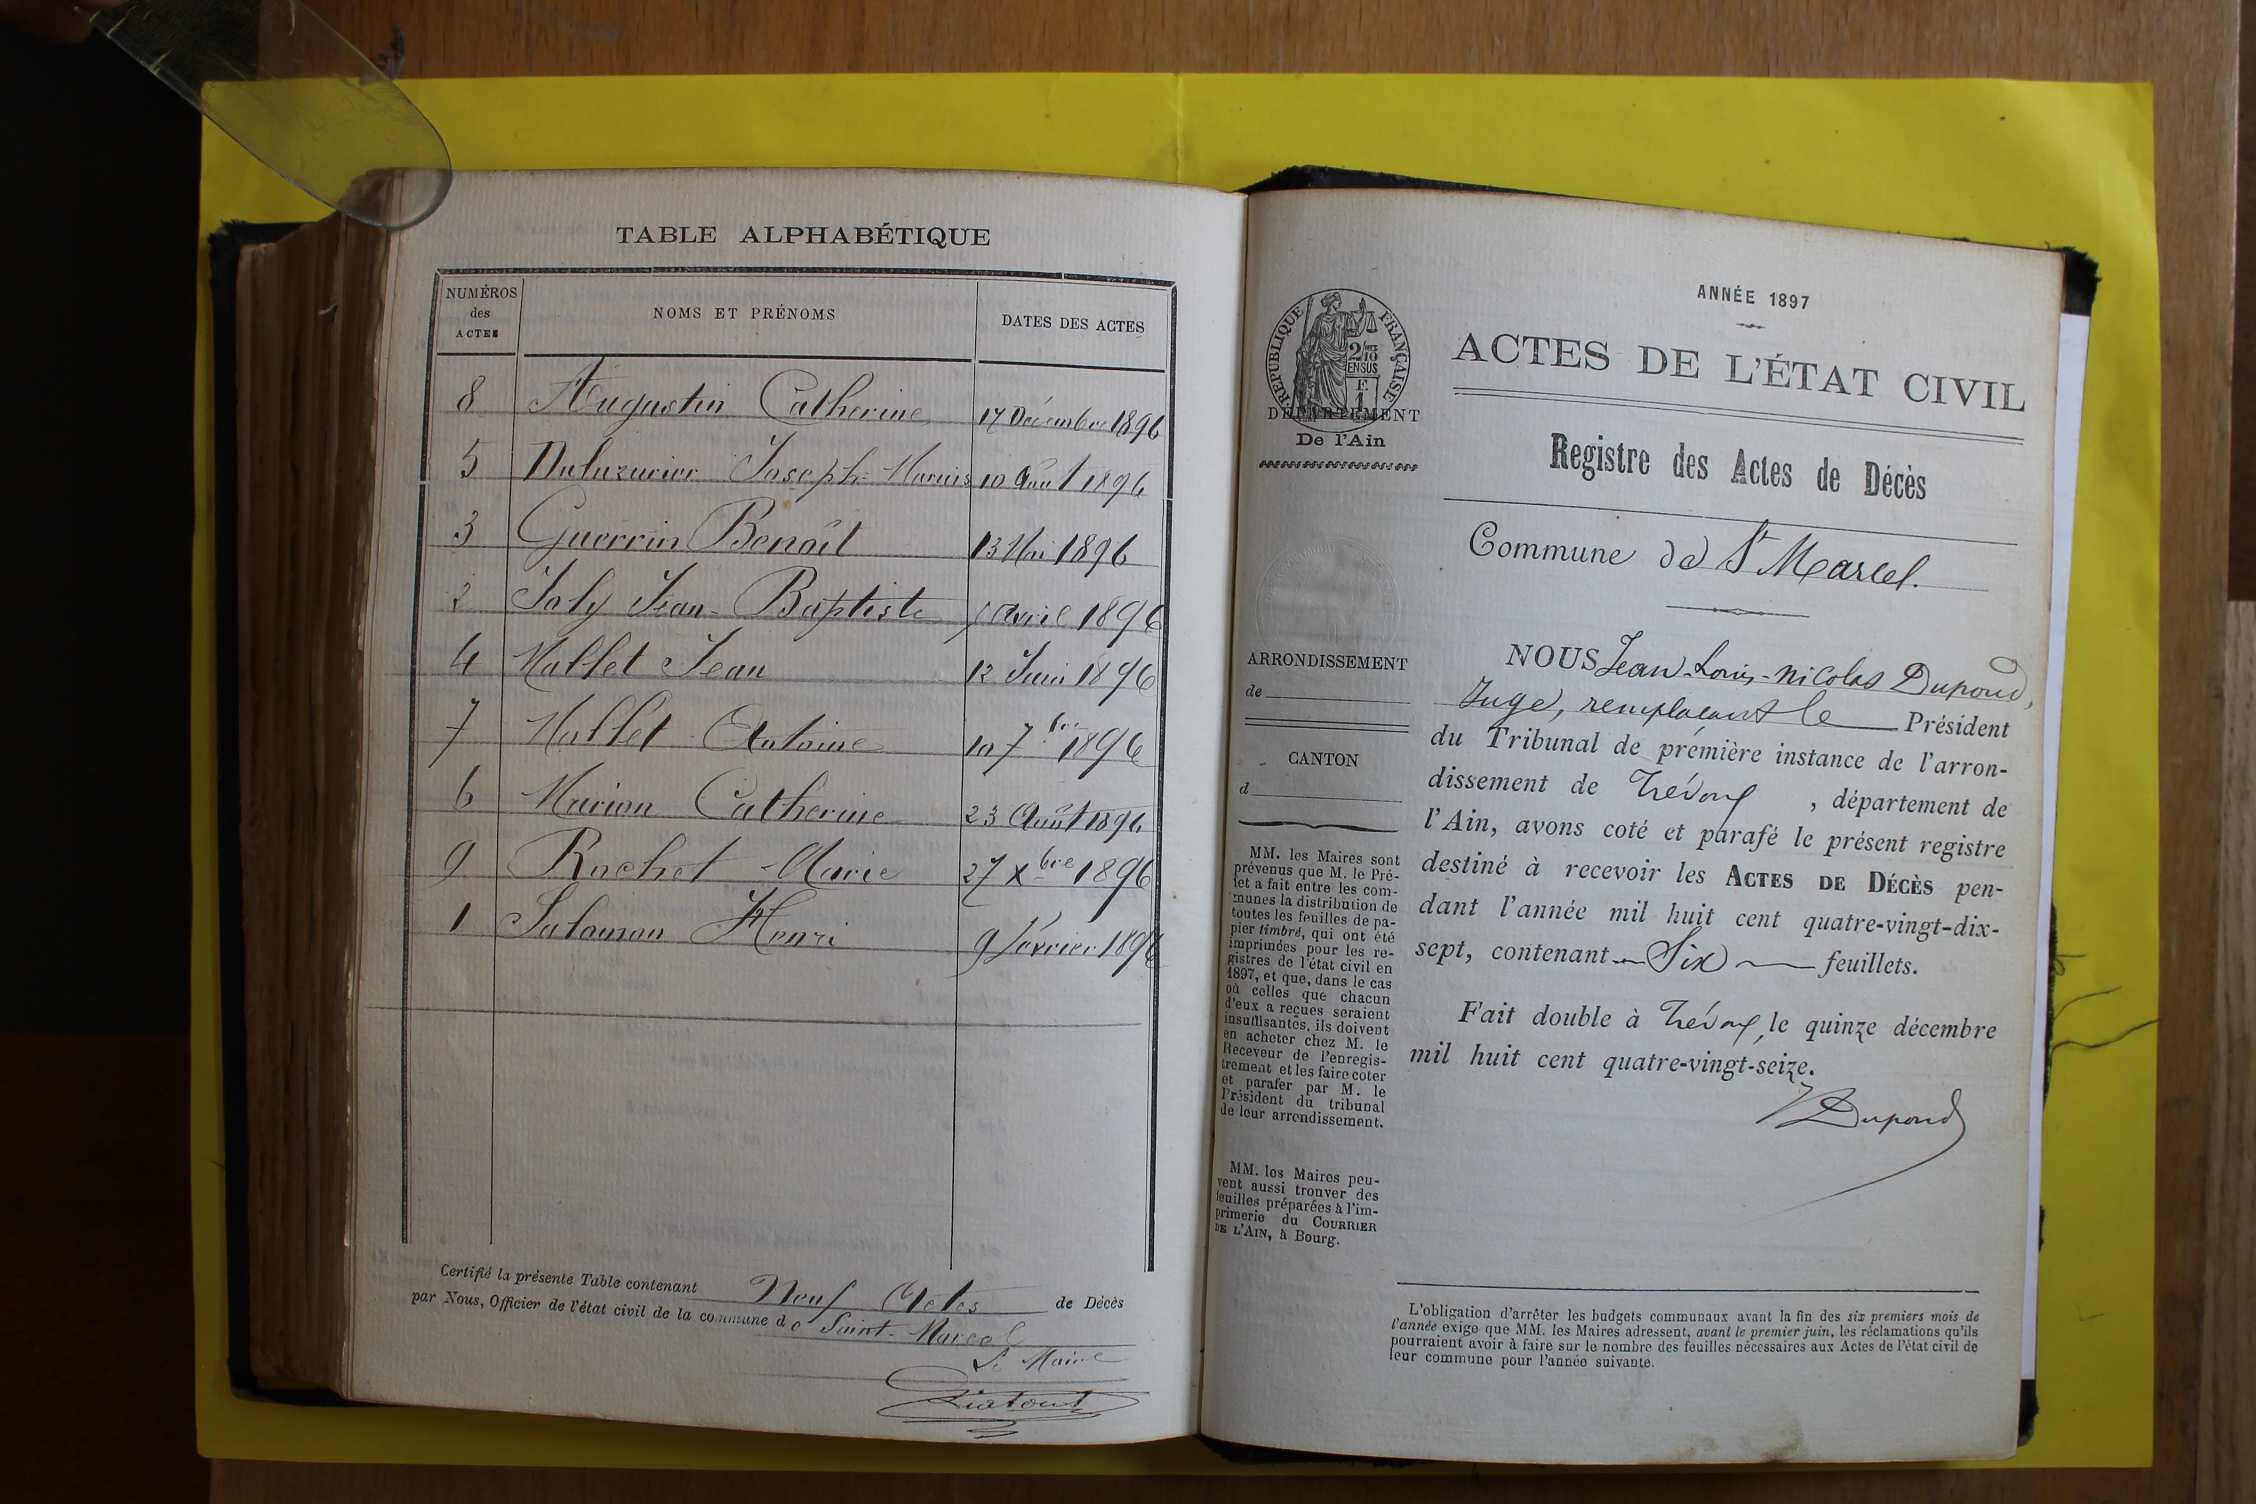 TABLE ALPHABÉTIQUE
NUMÉROS des ACTES NOMS ET PRÉNOMS DATES DES ACTES
8 Augustin Catherine 17 Décembre 1896
5 Duluzurier Joseph-Marius 10 Août 1896
3 Guerrin Benoît 13 Mai 1896
2 Joly Jean-Baptiste 7 Avril 1896
4 Mallet Jean 12 Juin 1896
7 Mallet Antoine 10 7bre 1896
6 Marion Catherine 23 Août 1896
9 Rochet Marie 27 Xbre 1896
1 Salomon Henri 9 février 1896
Certifié la présente Table contenant Neuf Actes de Décès
par Nous, Officier de l'état civil de la commune de Saint-Marcel
Le Maire
ANNÉE 1897
RÉPUBLIQUE FRANÇAISE
2/10
EN SUS
DÉPARTEMENT
De l'Ain
ARRONDISSEMENT
de
CANTON
d
MM. les Maires sont
prévenus que M. le Pré-
fet a fait entre les com-
munes la distribution de
toutes les feuilles de pa-
pier timbré, qui ont été
imprimées pour les re-
gistres de l'état civil en
1897, et que, dans le cas
où celles que chacun
d'eux a reçues seraient
insuffisantes, ils doivent
en acheter chez M. le
Receveur de l'enregis-
trement et les faire coter
et parafer par M. le
Président du tribunal
de leur arrondissement.
MM. les Maires peu-
vent aussi trouver des
feuilles préparées à l'im-
primerie du COURRIER
DE L'AIN, à Bourg.
ACTES DE L'ÉTAT CIVIL
Registre des Actes de Décès
Commune de St Marcel.
NOUS Jean-Louis-Nicolas Dupond,
Juge, remplaçant le Président
du Tribunal de prémière instance de l'arron-
dissement de Trévoux, département de
l'Ain, avons coté et parafé le présent registre
destiné à recevoir les ACTES DE DÉCÈS pen-
dant l'année mil huit cent quatre-vingt-dix-
sept, contenant Six feuillets.
Fait double à Trévoux, le quinze décembre
mil huit cent quatre-vingt-seize.
Dupond
L'obligation d'arrêter les budgets communaux avant la fin des six premiers mois de
l'année exige que MM. les Maires adressent, avant le premier juin, les réclamations qu'ils
pourraient avoir à faire sur le nombre des feuilles nécessaires aux Actes de l'état civil de
leur commune pour l'année suivante.